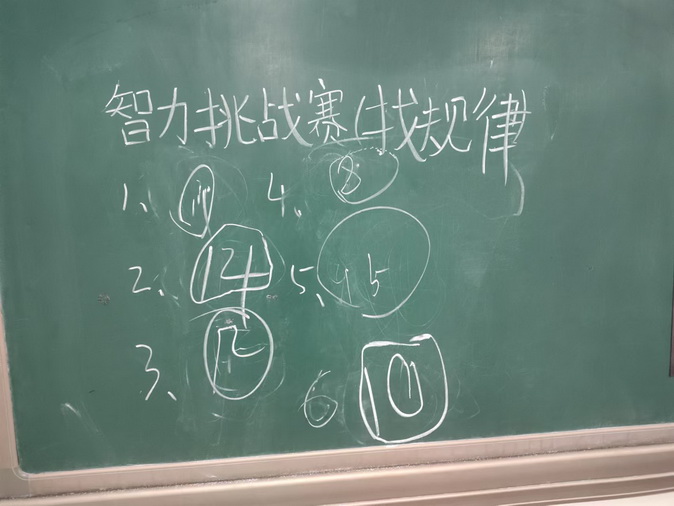 智力挑战赛(找规律)
1、 4、 8
2、 14 5、 45
3、
6 10